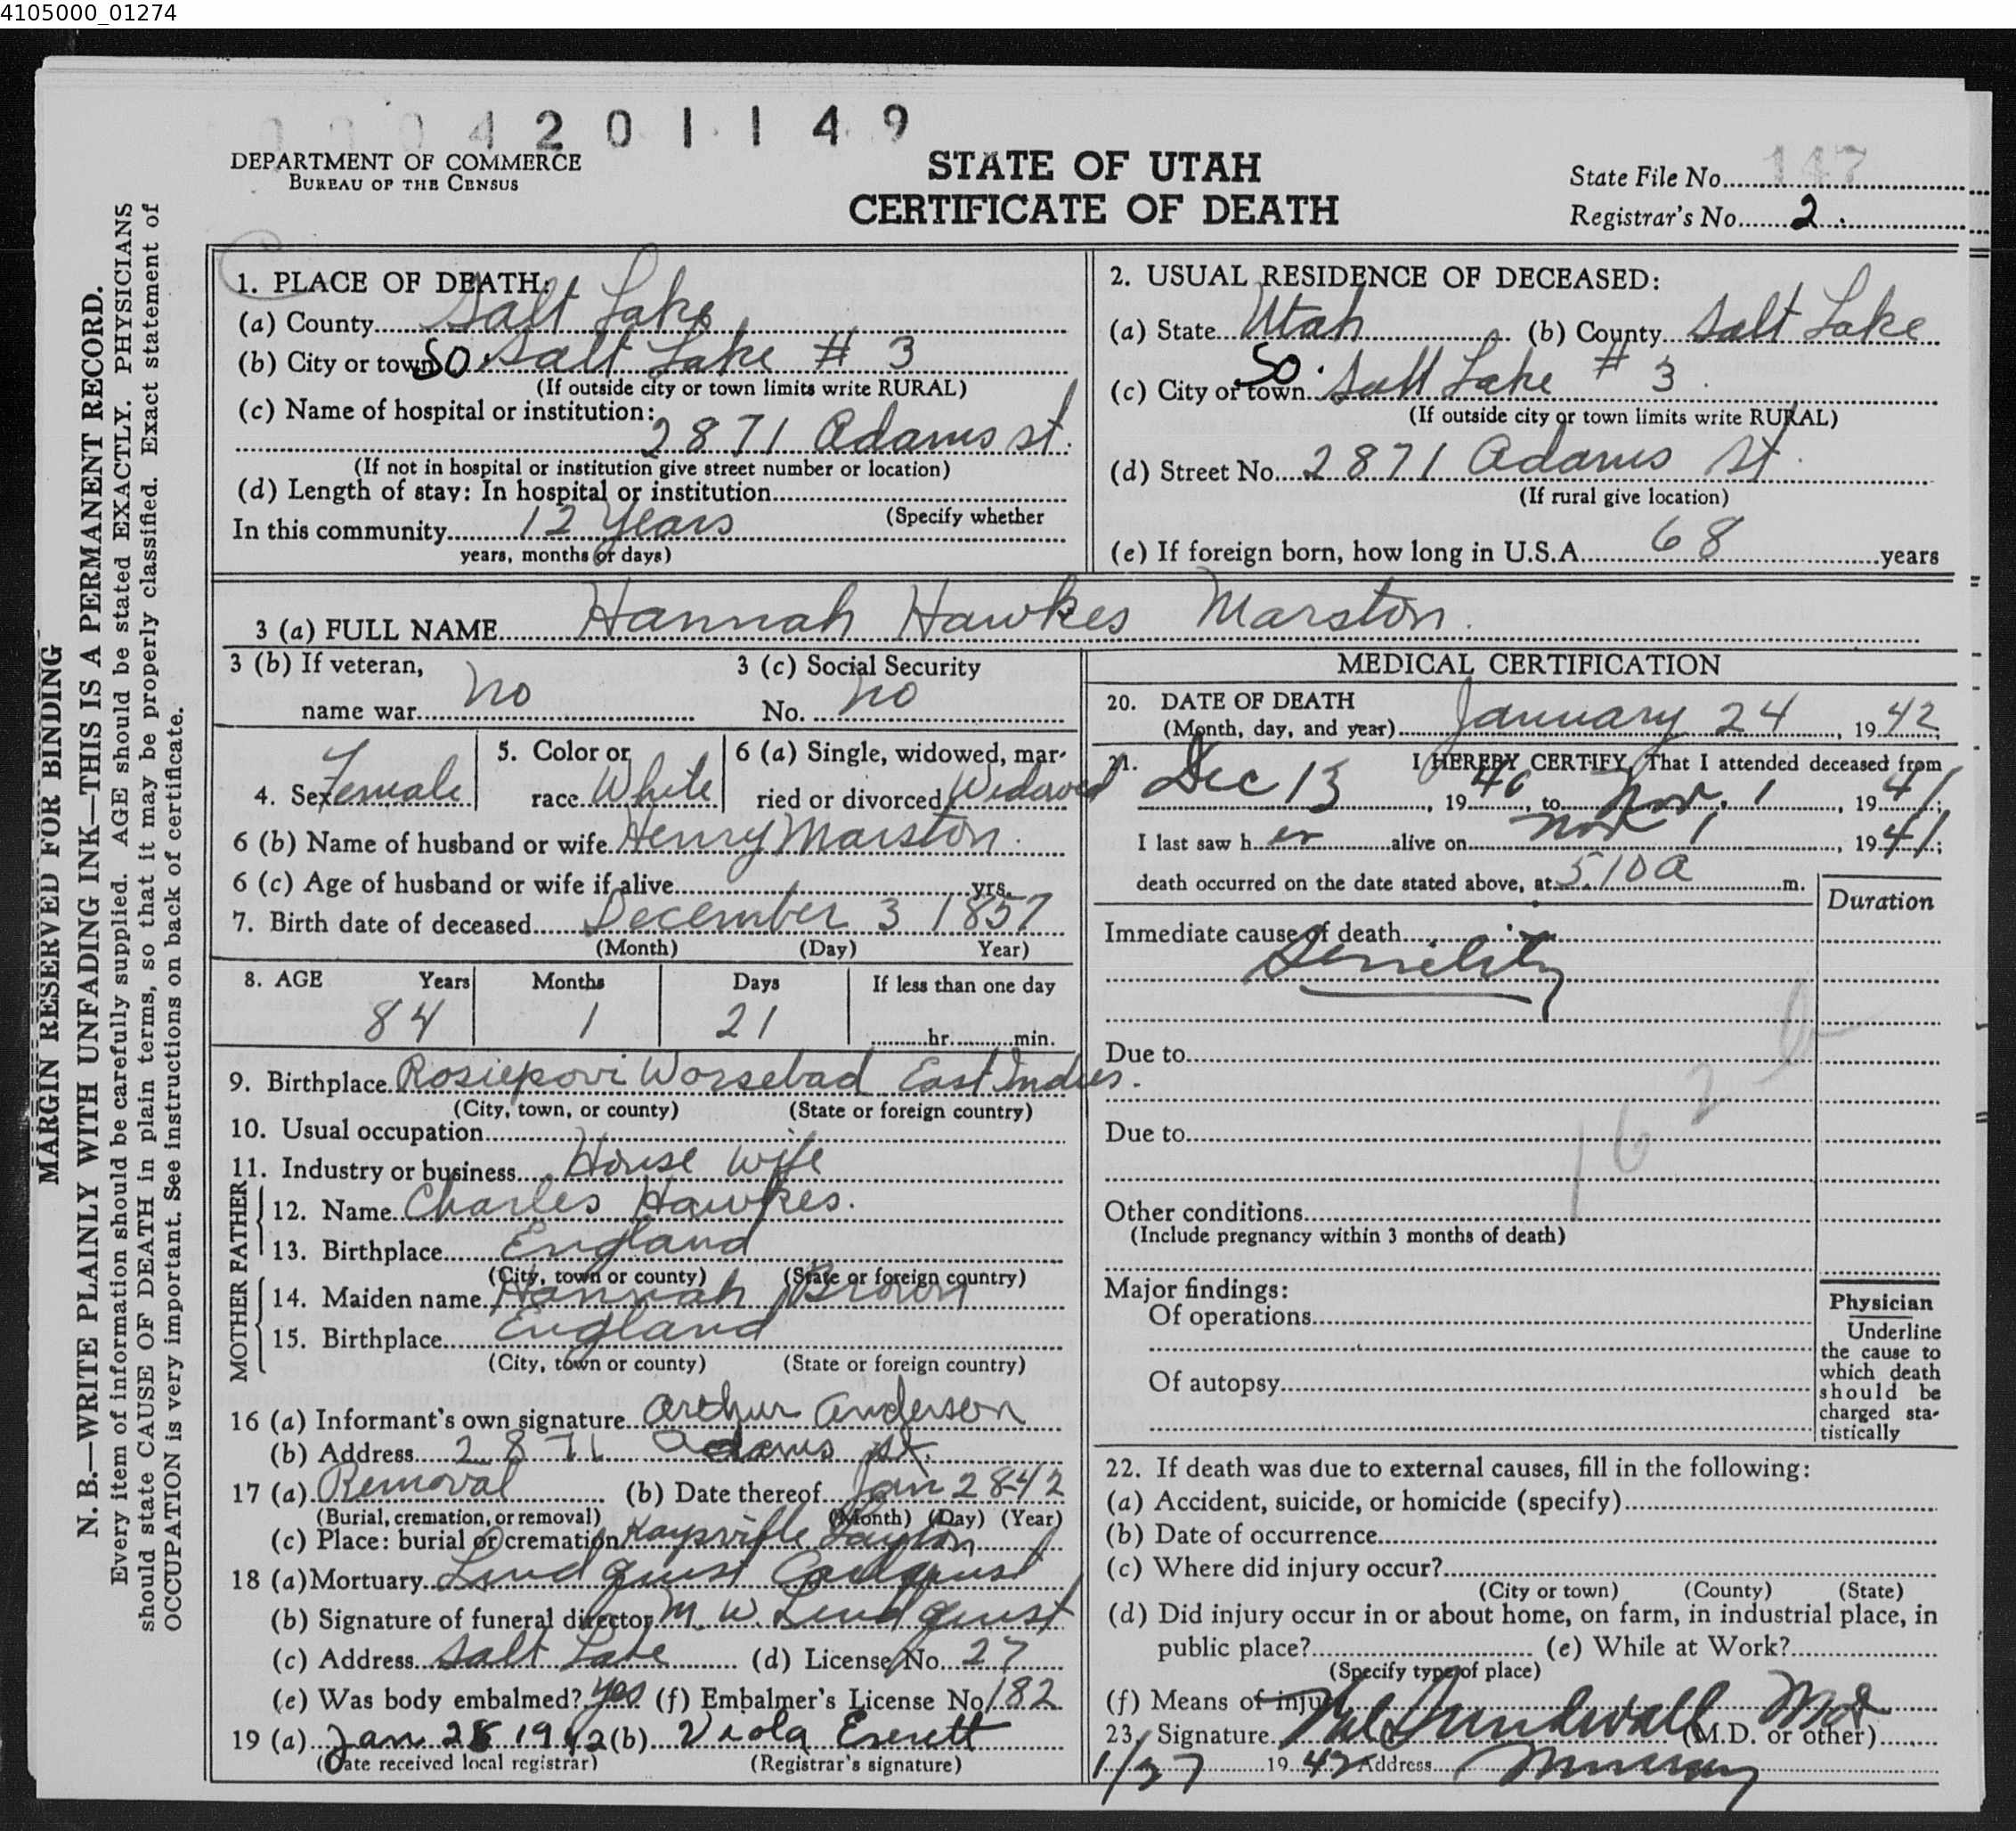 4105000_01274
0004201149
DEPARTMENT OF COMMERCE
BUREAU OF THE CENSUS
STATE OF UTAH
CERTIFICATE OF DEATH
State File No. 147
Registrar's No. 2
MARGIN RESERVED FOR BINDING
N. B.—WRITE PLAINLY WITH UNFADING INK—THIS IS A PERMANENT RECORD.
Every item of information should be carefully supplied. AGE should be stated EXACTLY. PHYSICIANS
should state CAUSE OF DEATH in plain terms, so that it may be properly classified. Exact statement of
OCCUPATION is very important. See instructions on back of certificate.
1. PLACE OF DEATH:
(a) County Salt Lake
(b) City or town So. Salt Lake # 3
(If outside city or town limits write RURAL)
(c) Name of hospital or institution:
2871 Adams st.
(If not in hospital or institution give street number or location)
(d) Length of stay: In hospital or institution
(Specify whether
In this community 12 Years
years, months or days)
2. USUAL RESIDENCE OF DECEASED:
(a) State Utah (b) County Salt Lake
(c) City or town So. Salt Lake # 3
(If outside city or town limits write RURAL)
(d) Street No. 2871 Adams St.
(If rural give location)
(e) If foreign born, how long in U.S.A. 68 years
3 (a) FULL NAME Hannah Hawkes Marston.
3 (b) If veteran,
name war no
3 (c) Social Security
No. no
4. Sex Female
5. Color or
race White
6 (a) Single, widowed, mar-
ried or divorced Widowed
6 (b) Name of husband or wife Henry Marston
6 (c) Age of husband or wife if alive yrs.
7. Birth date of deceased December 3 1857
(Month) (Day) Year)
8. AGE Years Months Days If less than one day
84 1 21 hr. min.
9. Birthplace Rosiepovi Worsebad East Indies.
(City, town, or county) (State or foreign country)
10. Usual occupation
11. Industry or business House wife
FATHER
12. Name Charles Hawkes.
13. Birthplace England
(City, town or county) (State or foreign country)
MOTHER
14. Maiden name Hannah Brown
15. Birthplace England
(City, town or county) (State or foreign country)
16 (a) Informant's own signature Arthur Anderson
(b) Address 2871 Adams st.
17 (a) Removal (b) Date thereof Jan 28-42
(Burial, cremation, or removal) (Month) (Day) (Year)
(c) Place: burial or cremation Kaysville Layton
18 (a) Mortuary Lindquist
(b) Signature of funeral director M. W. Lindquist
(c) Address Salt Lake (d) License No. 27
(e) Was body embalmed? yes (f) Embalmer's License No. 182
19 (a) Jan 28 1942 (b) Viola Everett
(Date received local registrar) (Registrar's signature)
MEDICAL CERTIFICATION
20. DATE OF DEATH
(Month, day, and year) January 24, 1942
21. I HEREBY CERTIFY, That I attended deceased from
Dec 13, 1940, to Nov. 1, 1941;
I last saw her alive on Nov 1, 1941;
death occurred on the date stated above, at 510a m.
Duration
Immediate cause of death
Senility
Due to
Due to
162 b
Other conditions
(Include pregnancy within 3 months of death)
Major findings:
Of operations
Of autopsy
Physician
Underline
the cause to
which death
should be
charged sta-
tistically
22. If death was due to external causes, fill in the following:
(a) Accident, suicide, or homicide (specify)
(b) Date of occurrence
(c) Where did injury occur?
(City or town) (County) (State)
(d) Did injury occur in or about home, on farm, in industrial place, in
public place? (e) While at Work?
(Specify type of place)
(f) Means of injury
23. Signature Sundwall Md (M.D. or other)
1/27 1942 Address Murray